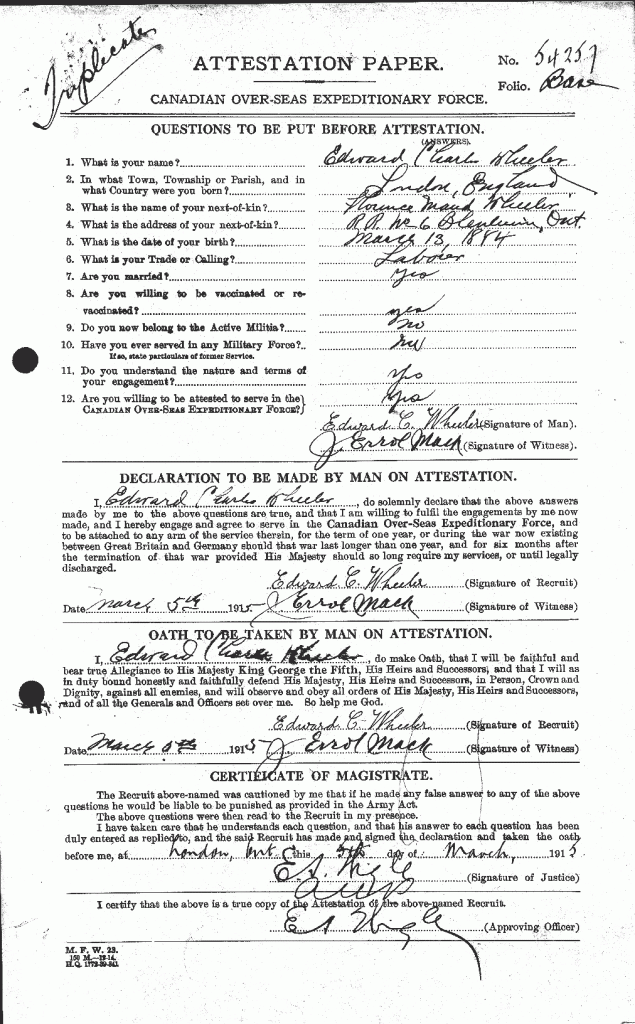 Triplicate
ATTESTATION PAPER.
No. 54257
Folio.
CANADIAN OVER-SEAS EXPEDITIONARY FORCE.
QUESTIONS TO BE PUT BEFORE ATTESTATION.
(ANSWERS).
1. What is your name? Edward Charles Wheeler
2. In what Town, Township or Parish, and in
what Country were you born? London, England
3. What is the name of your next-of-kin? Florence Maud Wheeler
4. What is the address of your next-of-kin? R.R. No 6 Blenheim, Ont.
5. What is the date of your birth? March 13, 1884
6. What is your Trade or Calling? Laborer
7. Are you married? Yes
8. Are you willing to be vaccinated or re-
vaccinated? yes
9. Do you now belong to the Active Militia? No
10. Have you ever served in any Military Force? No
If so, state particulars of former Service.
11. Do you understand the nature and terms of
your engagement? Yes
12. Are you willing to be attested to serve in the
CANADIAN OVER-SEAS EXPEDITIONARY FORCE? Yes
Edward C. Wheeler (Signature of Man).
J. Errol Mack (Signature of Witness).
DECLARATION TO BE MADE BY MAN ON ATTESTATION.
I, Edward Charles Wheeler, do solemnly declare that the above answers
made by me to the above questions are true, and that I am willing to fulfil the engagements by me now
made, and I hereby engage and agree to serve in the Canadian Over-Seas Expeditionary Force, and
to be attached to any arm of the service therein, for the term of one year, or during the war now existing
between Great Britain and Germany should that war last longer than one year, and for six months after
the termination of that war provided His Majesty should so long require my services, or until legally
discharged.
Edward C. Wheeler (Signature of Recruit)
Date March 5th 1915 J. Errol Mack (Signature of Witness)
OATH TO BE TAKEN BY MAN ON ATTESTATION.
I, Edward Charles Wheeler, do make Oath, that I will be faithful and
bear true Allegiance to His Majesty King George the Fifth, His Heirs and Successors, and that I will as
in duty bound honestly and faithfully defend His Majesty, His Heirs and Successors, in Person, Crown and
Dignity, against all enemies, and will observe and obey all orders of His Majesty, His Heirs and Successors,
and of all the Generals and Officers set over me. So help me God.
Edward C. Wheeler (Signature of Recruit)
Date March 5th 1915 J. Errol Mack (Signature of Witness)
CERTIFICATE OF MAGISTRATE.
The Recruit above-named was cautioned by me that if he made any false answer to any of the above
questions he would be liable to be punished as provided in the Army Act.
The above questions were then read to the Recruit in my presence.
I have taken care that he understands each question, and that his answer to each question has been
duly entered as replied to, and the said Recruit has made and signed the declaration and taken the oath
before me, at London, Ont this 5th day of March, 1915
(Signature of Justice)
I certify that the above is a true copy of the Attestation of the above-named Recruit.
(Approving Officer)
M. F. W. 23.
150 M.—12-14.
H.Q. 1772-39-841.